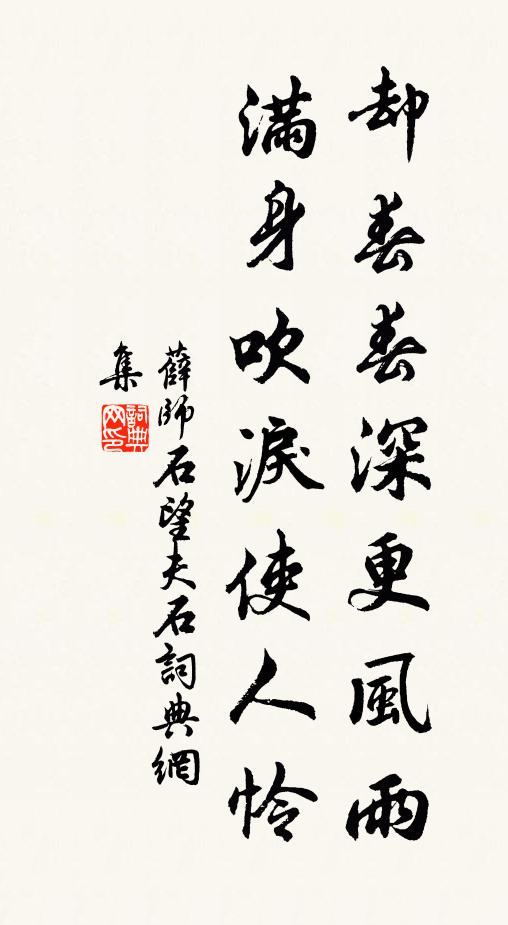 却春春深更風雨
滿身吹淚使人怜
薛師石望夫石詞典網
集
詞典网印